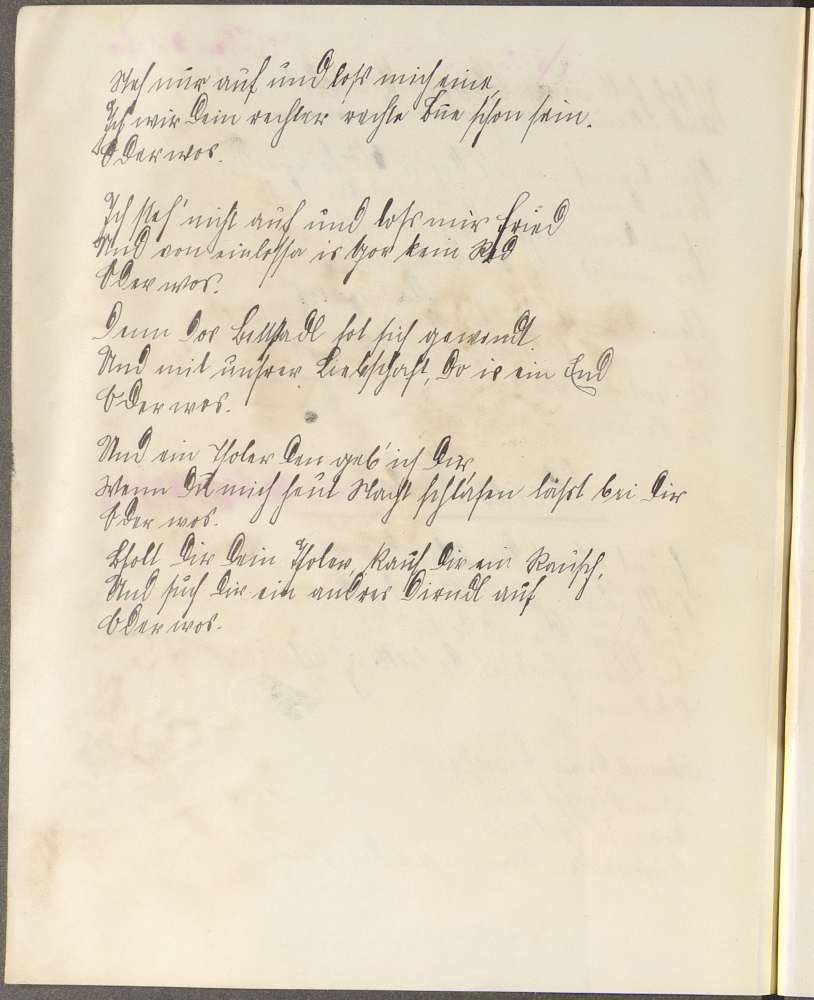 Steh nur auf und loß mich eine,
Ich wir dein rechter rechte Bue schon sein.
Oder wos.
Ich steh' nicht auf und loß mir Fried
Und von einlossa is gor kein Red
Oder wos.
Denn dos Bettstadl hot sich gewendt.
Und mit unsrer Liebschaft, do is ein End
Oder wos.
Und ein Tholer den geb' ich dir,
Wenn du mich heut Nacht schlafen läßt bei dir
Oder wos.
Bholt dir dein Tholer, kauf dir ein Rausch,
Und such dir ein andres Dirndl auf
Oder wos.